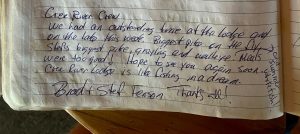 Cree River Crew,
We had an outstanding time at the lodge and
on the lake this week. Biggest pike on the fly,
Stef's biggest pike, grayling and walleye! Meals
were too good! Hope to see you again soon
Cree River Lodge is like fishing in a dream.
Brad & Stef Ferson Thanks all!